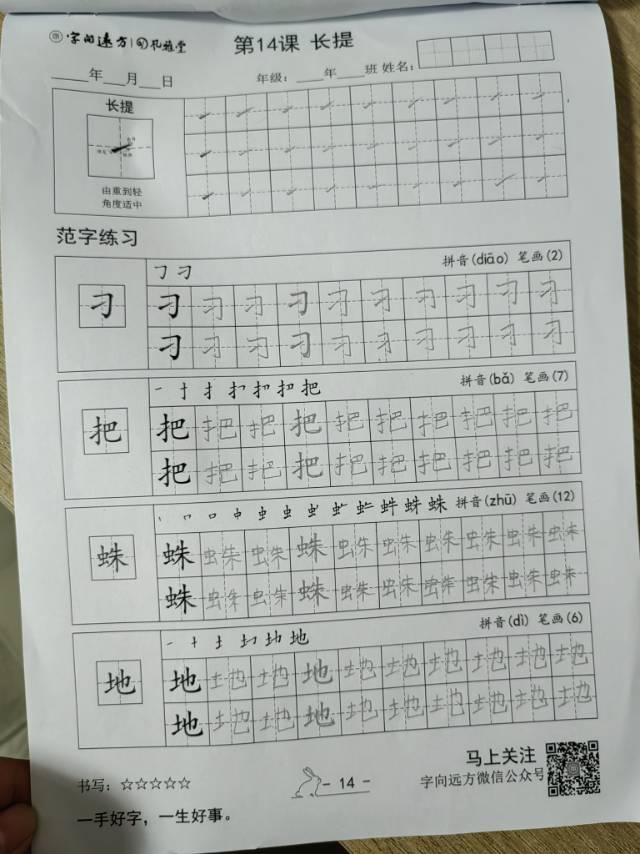 字向远方
第14课 长提
年 月 日 年级： 年 班 姓名：
长提
由重到轻
角度适中
范字练习
拼音(diāo) 笔画(2)
刁
刁 刁 刁 刁 刁 刁 刁 刁 刁 刁
刁 刁 刁 刁 刁 刁 刁 刁 刁 刁
拼音(bǎ) 笔画(7)
把
把 把 把 把 把 把 把 把 把 把
把 把 把 把 把 把 把 把 把 把
拼音(zhū) 笔画(12)
蛛
蛛 蛛 蛛 蛛 蛛 蛛 蛛 蛛 蛛 蛛
蛛 蛛 蛛 蛛 蛛 蛛 蛛 蛛 蛛 蛛
拼音(dì) 笔画(6)
地
地 地 地 地 地 地 地 地 地 地
地 地 地 地 地 地 地 地 地 地
书写：☆☆☆☆☆
- 14 -
马上关注
字向远方微信公众号
一手好字，一生好事。